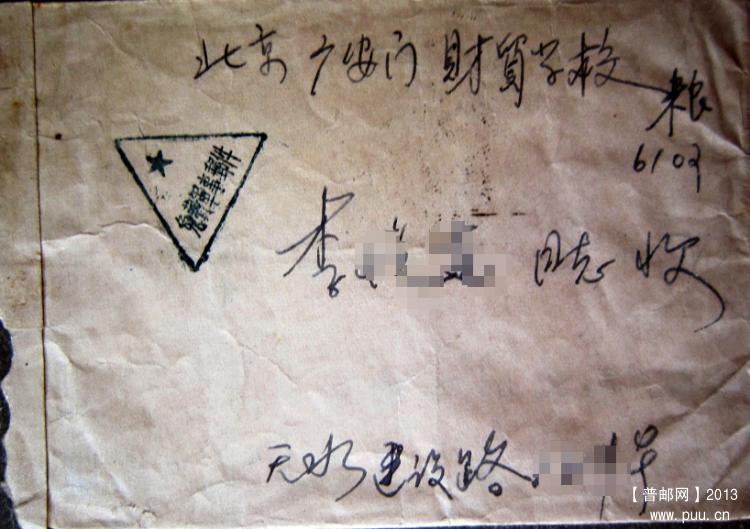 北京广安门财貿学校
粮
6103
免費軍事郵件
李
同志收
天水建设路
号
【普邮网】2013
www.puu.cn